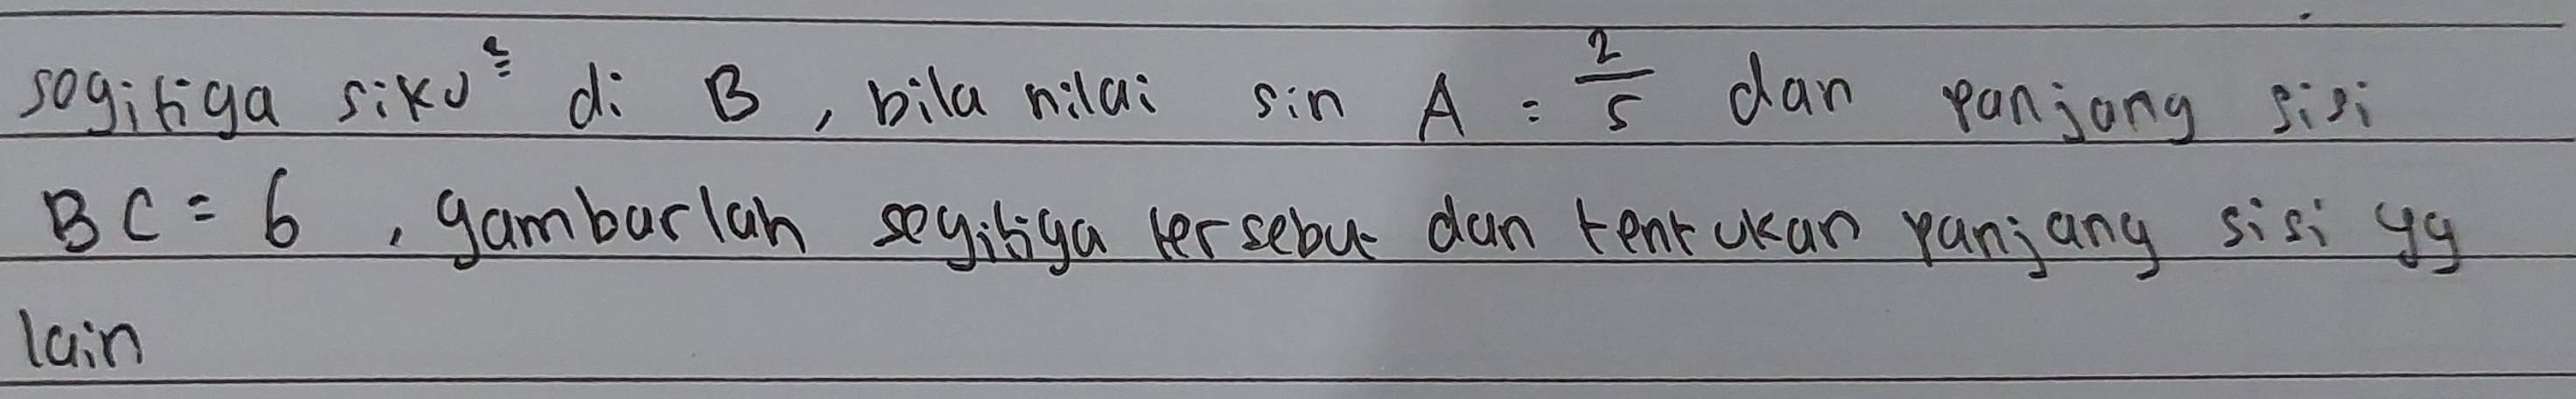 segitiga siku² di B, bila nilai sin A = 2/5 dan panjang sisi
BC = 6, gambarlah segitiga tersebut dan tentukan panjang sisi yg
lain